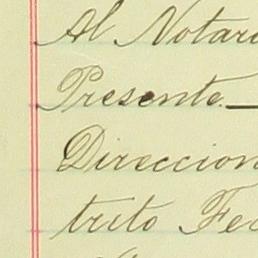 Al Notari
Presente.—
Direccion
trito Fed